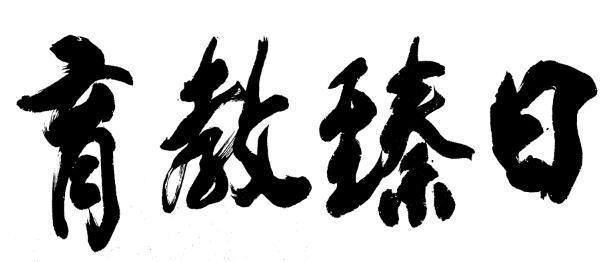 日臻教育